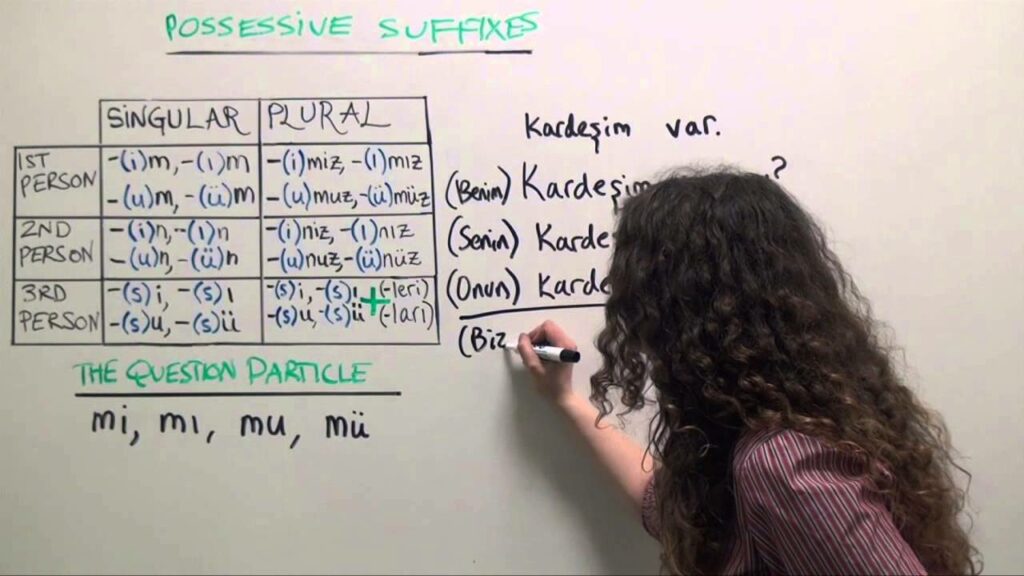 POSSESSIVE SUFFIXES
SINGULAR PLURAL
1ST PERSON
-(i)m, -(ı)m
-(u)m, -(ü)m
-(i)miz, -(ı)mız
-(u)muz, -(ü)müz
2ND PERSON
-(i)n, -(ı)n
-(u)n, -(ü)n
-(i)niz, -(ı)nız
-(u)nuz, -(ü)nüz
3RD PERSON
-(s)i, -(s)ı
-(s)u, -(s)ü
-(s)i, -(s)ı
-(s)u, -(s)ü
+
(-leri)
(-ları)
THE QUESTION PARTICLE
mi, mı, mu, mü
Kardeşim var.
(Benim) Kardeşim ?
(Senin) Karde
(Onun) Karde
(Biz